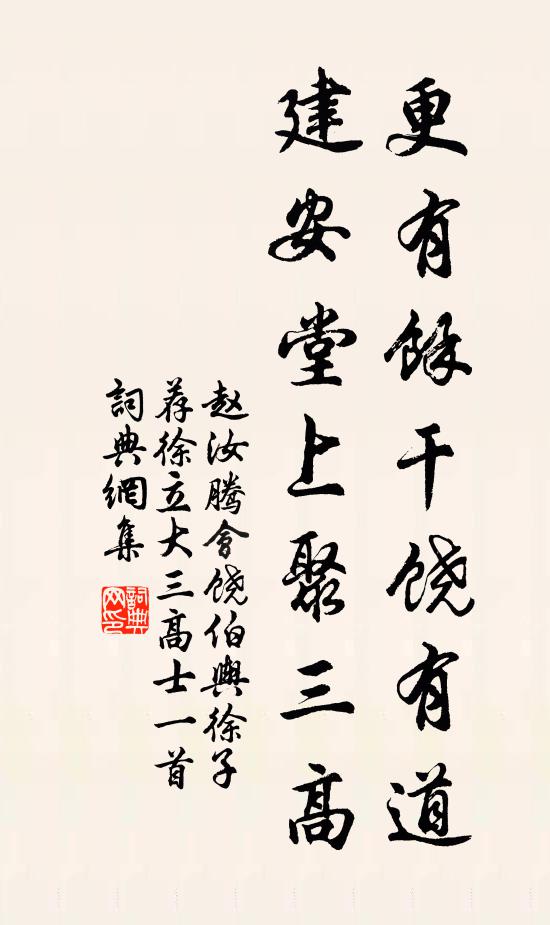 更有餘干饶有道
建安堂上聚三高
赵汝腾會饶伯與徐子
荐徐立大三高士一首
詞典網集
詞典
网印